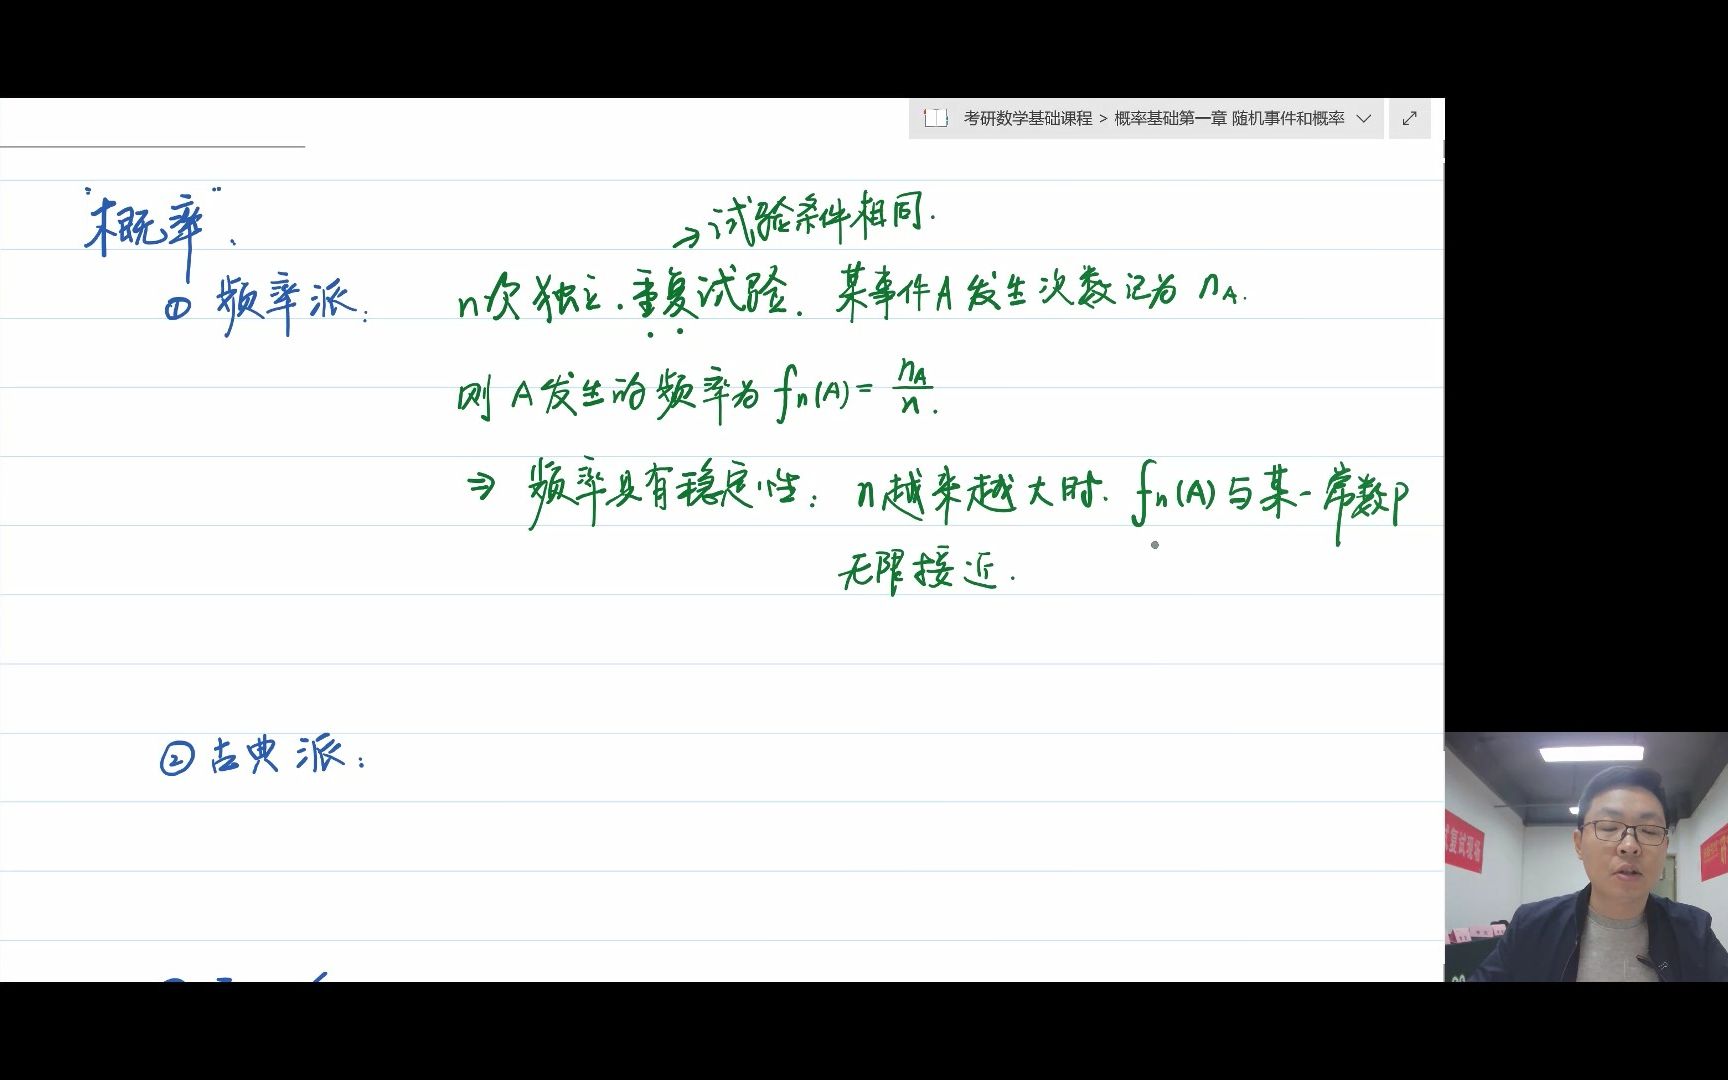 考研数学基础课程 > 概率基础第一章 随机事件和概率
"概率".
→试验条件相同.
① 频率派: n次独立.重复试验. 某事件A发生次数记为 nA.
则 A发生的频率为 fn(A) = nA/n.
⇒ 频率具有稳定性: n越来越大时. fn(A)与某一常数p
无限接近.
② 古典派:
复试现场